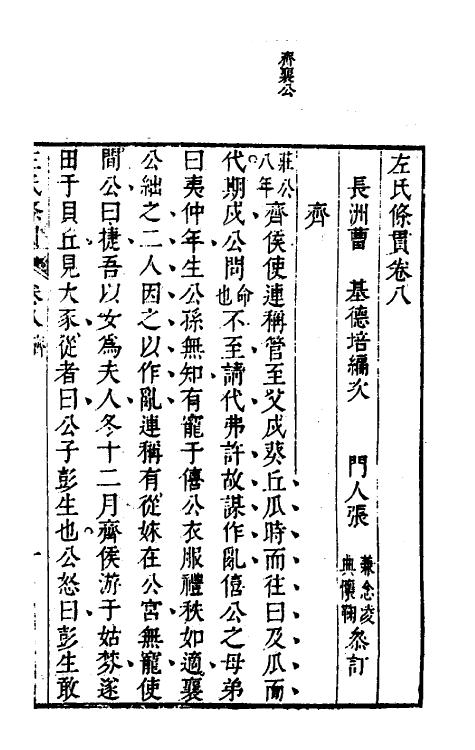 齊襄公
左氏條貫卷八
長洲曹 基德培編次 門人張 兼念凌 典懷鞠 叅訂
齊
莊公八年 齊侯使連稱管至父戍葵丘瓜時而往曰及瓜而
代期戍公問命也不至請代弗許故謀作亂僖公之母弟
曰夷仲年生公孫無知有寵于僖公衣服禮秩如適襄
公絀之二人因之以作亂連稱有從妹在公宮無寵使
間公曰捷吾以女爲夫人冬十二月齊侯游于姑棼遂
田于貝丘見大豕從者曰公子彭生也公怒曰彭生敢
左氏條貫 卷八 齊 一